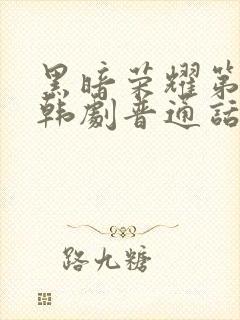 黑暗荣耀第
韩剧普通话
路九糖